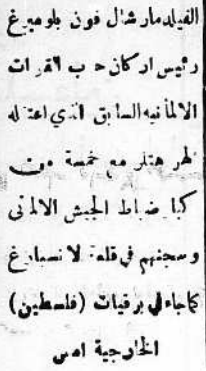 الفيلدمارشال فون بلومبرغ
رئيس اركان حرب القوات
الالمانيه السابق الذي اعتقله
الهر هتلر مع خمسة من
كبار ضباط الجيش الالماني
وسجنهم في قلعة لانسبارغ
كماجاء في برقيات (فلسطين)
الخارجية امس